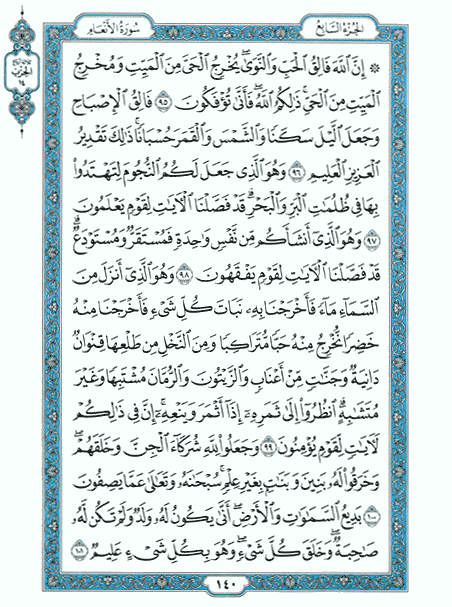 الجزء السابع
سورة الأنعام
الحزب
١٤
۞ إِنَّ ٱللَّهَ فَالِقُ ٱلْحَبِّ وَٱلنَّوَىٰ ۖ يُخْرِجُ ٱلْحَىَّ مِنَ ٱلْمَيِّتِ وَمُخْرِجُ
ٱلْمَيِّتِ مِنَ ٱلْحَىِّ ۚ ذَٰلِكُمُ ٱللَّهُ ۖ فَأَنَّىٰ تُؤْفَكُونَ ٩٥ فَالِقُ ٱلْإِصْبَاحِ
وَجَعَلَ ٱلَّيْلَ سَكَنًا وَٱلشَّمْسَ وَٱلْقَمَرَ حُسْبَانًا ۚ ذَٰلِكَ تَقْدِيرُ
ٱلْعَزِيزِ ٱلْعَلِيمِ ٩٦ وَهُوَ ٱلَّذِى جَعَلَ لَكُمُ ٱلنُّجُومَ لِتَهْتَدُوا۟
بِهَا فِى ظُلُمَٰتِ ٱلْبَرِّ وَٱلْبَحْرِ ۗ قَدْ فَصَّلْنَا ٱلْءَايَٰتِ لِقَوْمٍ يَعْلَمُونَ
٩٧ وَهُوَ ٱلَّذِىٓ أَنشَأَكُم مِّن نَّفْسٍ وَٰحِدَةٍ فَمُسْتَقَرٌّ وَمُسْتَوْدَعٌ ۗ
قَدْ فَصَّلْنَا ٱلْءَايَٰتِ لِقَوْمٍ يَفْقَهُونَ ٩٨ وَهُوَ ٱلَّذِىٓ أَنزَلَ مِنَ
ٱلسَّمَآءِ مَآءً فَأَخْرَجْنَا بِهِۦ نَبَاتَ كُلِّ شَىْءٍ فَأَخْرَجْنَا مِنْهُ
خَضِرًا نُّخْرِجُ مِنْهُ حَبًّا مُّتَرَاكِبًا وَمِنَ ٱلنَّخْلِ مِن طَلْعِهَا قِنْوَانٌ
دَانِيَةٌ وَجَنَّٰتٍ مِّنْ أَعْنَابٍ وَٱلزَّيْتُونَ وَٱلرُّمَّانَ مُشْتَبِهًا وَغَيْرَ
مُتَشَٰبِهٍ ۗ ٱنظُرُوٓا۟ إِلَىٰ ثَمَرِهِۦٓ إِذَآ أَثْمَرَ وَيَنْعِهِۦٓ ۚ إِنَّ فِى ذَٰلِكُمْ
لَءَايَٰتٍ لِّقَوْمٍ يُؤْمِنُونَ ٩٩ وَجَعَلُوا۟ لِلَّهِ شُرَكَآءَ ٱلْجِنَّ وَخَلَقَهُمْ ۖ
وَخَرَقُوا۟ لَهُۥ بَنِينَ وَبَنَٰتٍۭ بِغَيْرِ عِلْمٍ ۚ سُبْحَٰنَهُۥ وَتَعَٰلَىٰ عَمَّا يَصِفُونَ
١٠٠ بَدِيعُ ٱلسَّمَٰوَٰتِ وَٱلْأَرْضِ ۖ أَنَّىٰ يَكُونُ لَهُۥ وَلَدٌ وَلَمْ تَكُن لَّهُۥ
صَٰحِبَةٌ ۖ وَخَلَقَ كُلَّ شَىْءٍ ۖ وَهُوَ بِكُلِّ شَىْءٍ عَلِيمٌ ١٠١
١٤٠